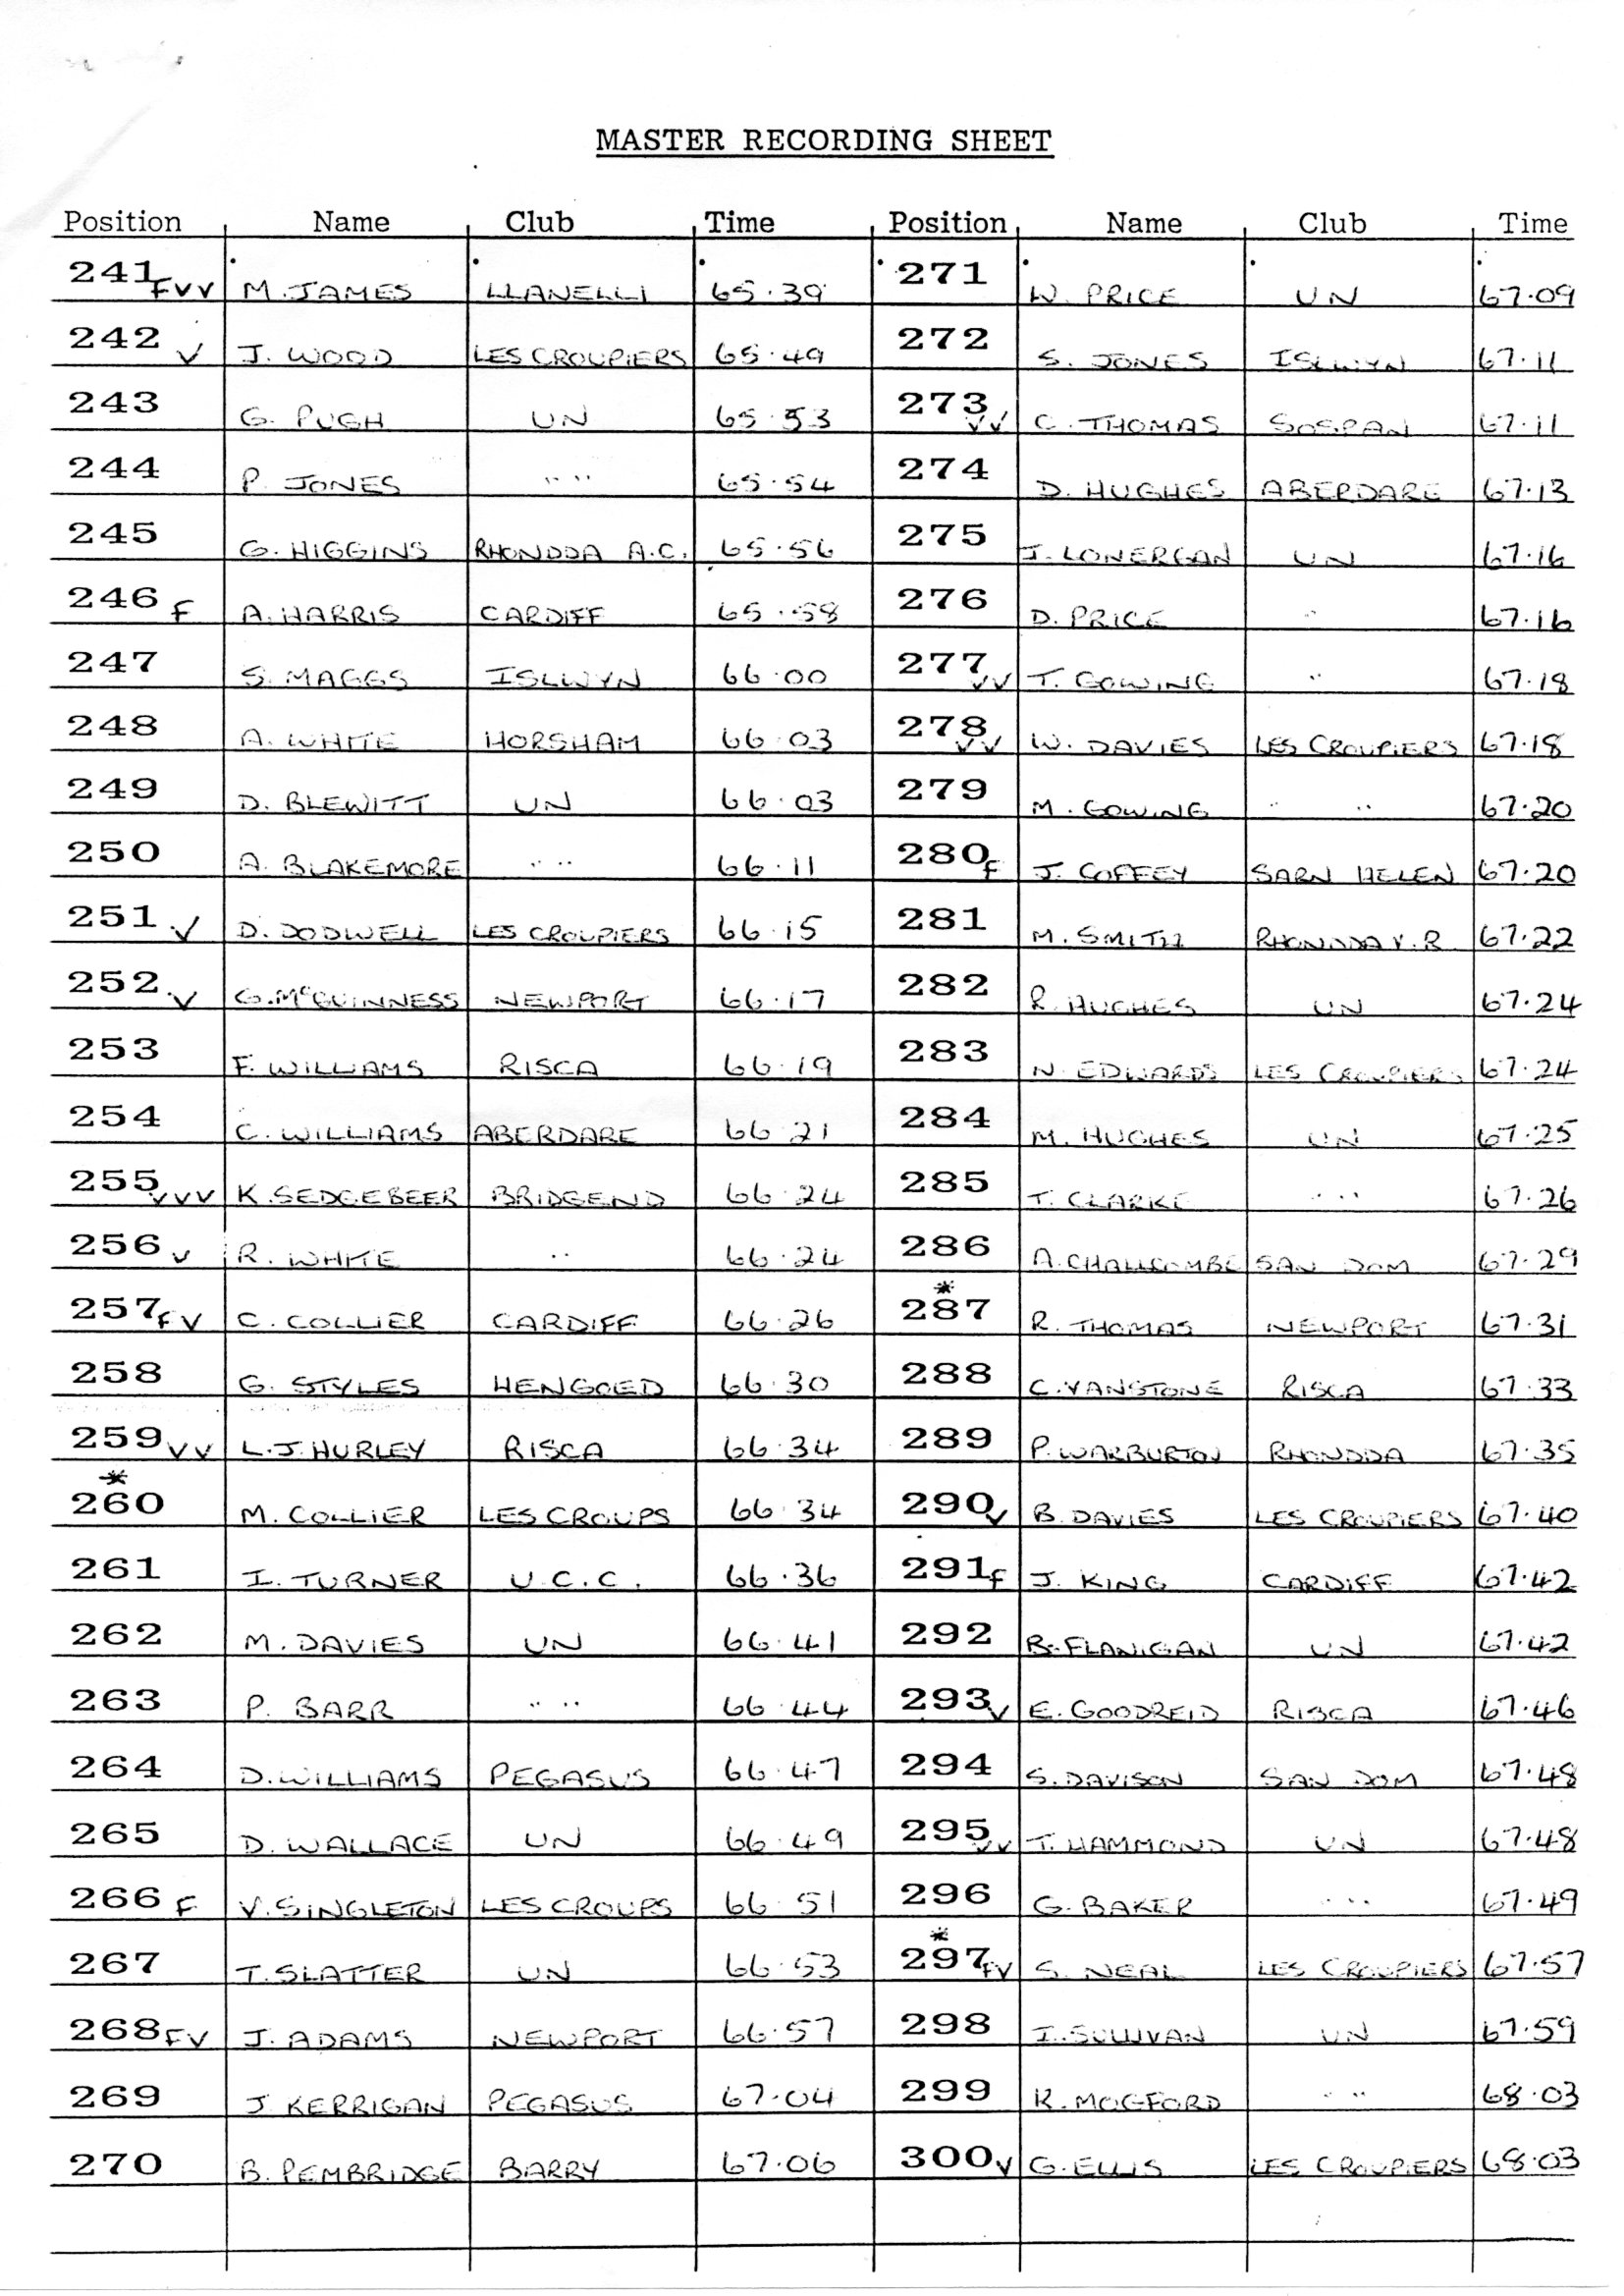 MASTER RECORDING SHEET
Position Name Club Time Position Name Club Time
241 FVV M. JAMES LLANELLI 65.39 271 W. PRICE UN 67.09
242 V J. WOOD LES CROUPIERS 65.49 272 S. JONES ISLWYN 67.11
243 G. PUGH UN 65.53 273 VV C. THOMAS SOSPAN 67.11
244 P. JONES " " 65.54 274 D. HUGHES ABERDARE 67.13
245 G. HIGGINS RHONDDA A.C. 65.56 275 J. LONERGAN UN 67.16
246 F A. HARRIS CARDIFF 65.58 276 D. PRICE " 67.16
247 S. MAGGS ISLWYN 66.00 277 VV T. GOWING " 67.18
248 A. WHITE HORSHAM 66.03 278 VV W. DAVIES LES CROUPIERS 67.18
249 D. BLEWITT UN 66.03 279 M. GOWING " " 67.20
250 A. BLAKEMORE " " 66.11 280 F J. COFFEY SARN HELEN 67.20
251 V D. DODWELL LES CROUPIERS 66.15 281 M. SMITH RHONDDA V.R 67.22
252 V G. McGUINNESS NEWPORT 66.17 282 R. HUGHES UN 67.24
253 F. WILLIAMS RISCA 66.19 283 N. EDWARDS LES CROUPIERS 67.24
254 C. WILLIAMS ABERDARE 66.21 284 M. HUGHES UN 67.25
255 VVV K. SEDGEBEER BRIDGEND 66.24 285 T. CLARKE " " 67.26
256 V R. WHITE " 66.24 286 A. CHALLCOMBE SAN DOM 67.29
257 FV C. COLLIER CARDIFF 66.26 * 287 R. THOMAS NEWPORT 67.31
258 G. STYLES HENGOED 66.30 288 C. VANSTONE RISCA 67.33
259 VV L.J. HURLEY RISCA 66.34 289 P. WARBURTON RHONDDA 67.35
* 260 M. COLLIER LES CROUPS 66.34 290 V B. DAVIES LES CROUPIERS 67.40
261 I. TURNER U.C.C. 66.36 291 F J. KING CARDIFF 67.42
262 M. DAVIES UN 66.41 292 B. FLANIGAN UN 67.42
263 P. BARR " " 66.44 293 V E. GOODREID RISCA 67.46
264 D. WILLIAMS PEGASUS 66.47 294 S. DAVISON SAN DOM 67.48
265 D. WALLACE UN 66.49 295 VV T. HAMMOND UN 67.48
266 F V. SINGLETON LES CROUPS 66.51 296 G. BAKER " " 67.49
267 T. SLATTER UN 66.53 * 297 FV S. NEAL LES CROUPIERS 67.57
268 FV J. ADAMS NEWPORT 66.57 298 I. SULLIVAN UN 67.59
269 J KERRIGAN PEGASUS 67.04 299 K. MOGFORD " " 68.03
270 B. PEMBRIDGE BARRY 67.06 300 V G. ELLIS LES CROUPIERS 68.03